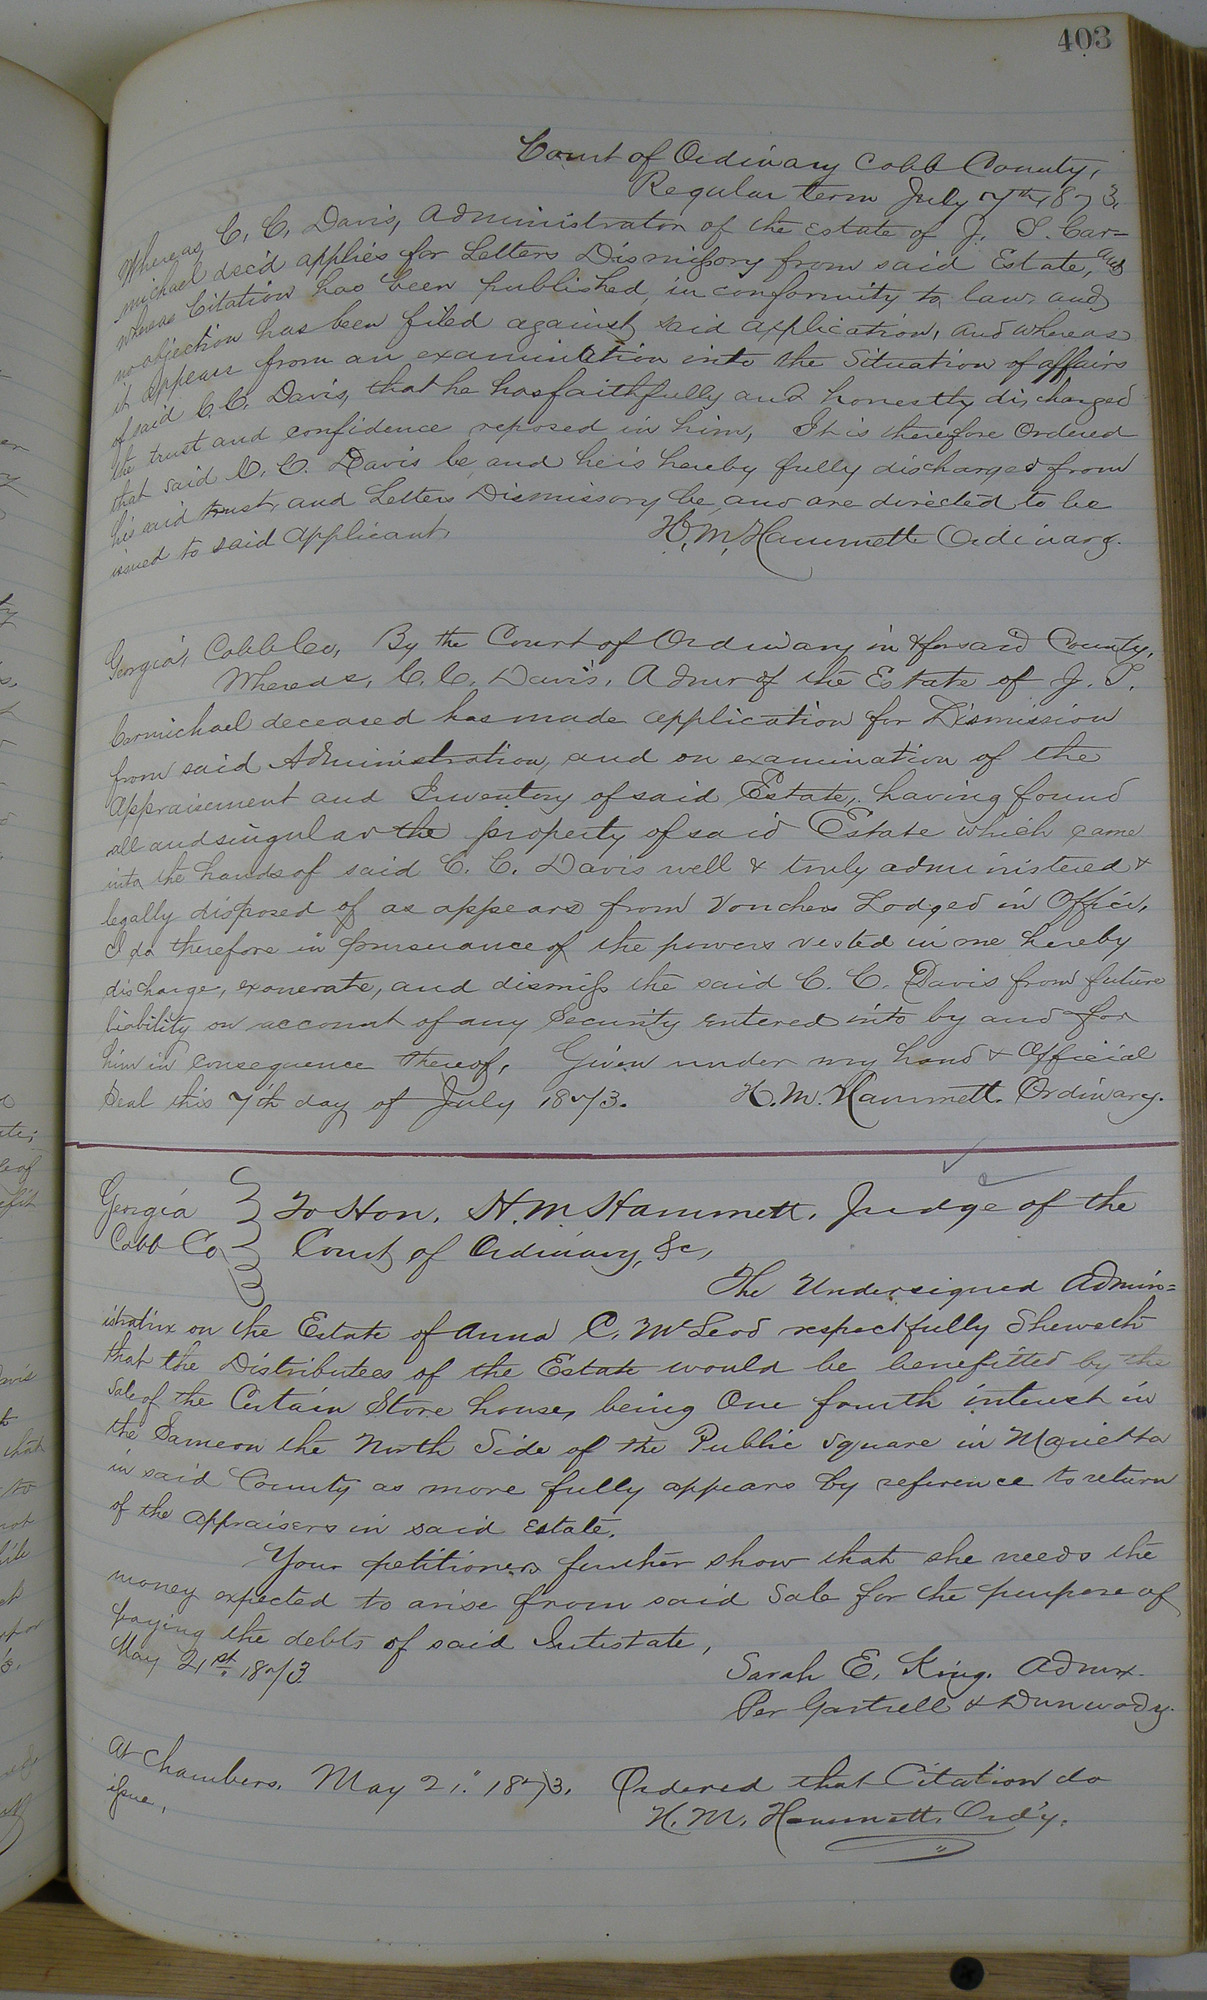 403
Court of Ordinary Cobb County,
Regular term July 7th 1873.
Whereas, C. C. Davis, Administrator of the Estate of J. S. Car=
michael dec'd applies for Letters Dismissory from said Estate, and
whereas Citation has been published, in conformity to law, and
no objection has been filed against said application, and whereas
it appears from an examination into the Situation of affairs
of said C. C. Davis, that he has faithfully and honestly discharged
the trust and confidence reposed in him, It is therefore Ordered
that said C. C. Davis be, and he is hereby fully discharged from
his said trust, and Letters Dismissory be and are directed to be
issued to said Applicant,
H. M. Hammett Ordinary.
Georgia, Cobb Co, By the Court of Ordinary in & for said County,
Whereas, C. C. Davis, Admr of the Estate of J. S.
Carmichael deceased has made application for Dismission
from said Administration, and on examination of the
Appraisement and Inventory of said Estate, having found
all and singular the property of said Estate which came
into the hands of said C. C. Davis well & truly administered &
legally disposed of as appears from Vouchers Lodged in Office,
I do therefore in pursuance of the powers vested in me hereby
discharge, exonerate, and dismiss the said C. C. Davis from future
liability on account of any Security entered into by and for
him in consequence thereof, Given under my hand & Official
Seal this 7th day of July 1873. H. M. Hammett. Ordinary.
Georgia To Hon. H. M. Hammett, Judge of the
Cobb Co Court of Ordinary, &c,
The Undersigned Admin=
istratrix on the Estate of Anna C. McLeod respectfully Sheweth
that the Distributees of the Estate would be benefitted by the
Sale of the Certain Store house, being One fourth interest in
the Same on the North Side of the Public Square in Marietta
in said County as more fully appears by reference to return
of the Appraisers in said Estate.
Your petitioner further show that she needs the
money expected to arise from said Sale for the purpose of
paying the debts of said Intestate,
May 21st. 1873.
Sarah E. King. Admrx.
Per Gartrell & Dunwody.
At Chambers, May 21." 1873. Ordered that Citation do
issue,
H. M. Hammett, Ord'y.